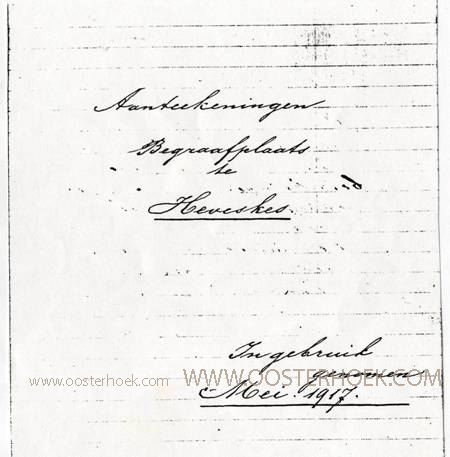 Aanteekeningen
Begraafplaats
te
Heveskes.
In gebruik
genomen
Mei 1917.
www.oosterhoek.com
WWW.OOSTERHOEK.COM